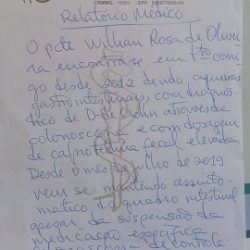 Relatório Médico
O pcte Willian Rosa de Olivei
ra encontra-se em Ttº comi
go desde 2012 tendo queixas
gastrointestinais, com diagnós
tico de D. de Crohn através de
colonoscopia e com dosagem
de calprotectina fecal elevada
Desde o mês de julho de 2019
vem se mantendo assinto
mático do quadro intestinal
apesar da suspensão da
medicação específica
colonoscopia de controle